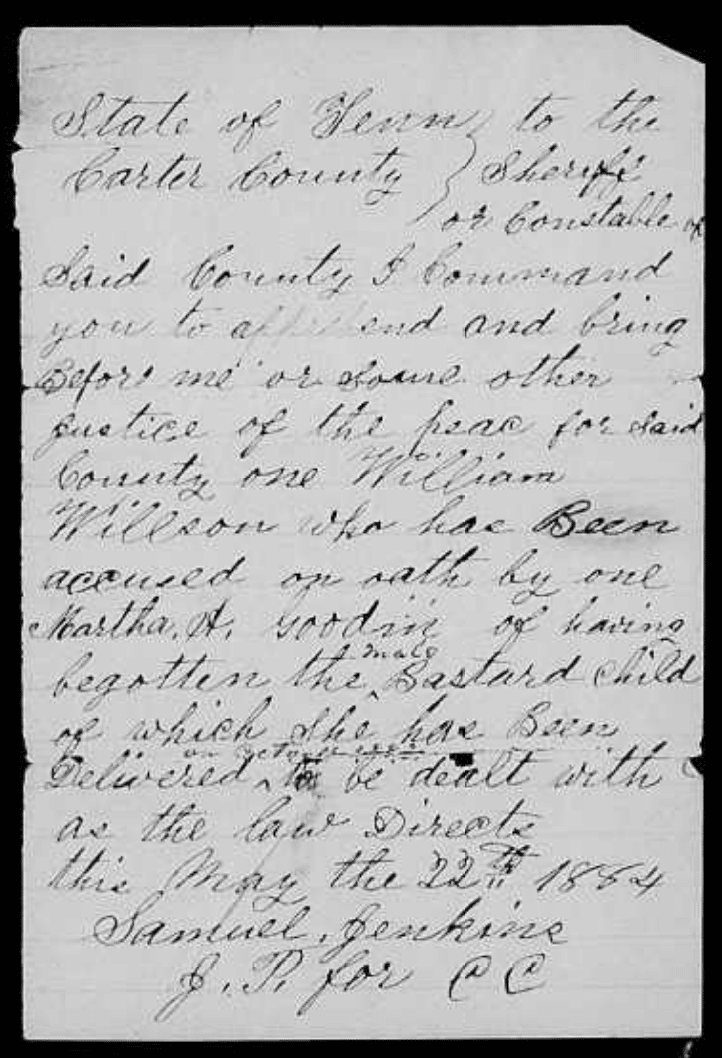 State of Tenn } to the
Carter County } Sheriff
or Constable of
Said County I Command
you to apprehend and bring
Before me or some other
justice of the peac for said
County one William
Willson who has Been
accused on oath by one
Martha. A. Goodin of having
male
begotten the ^ Bastard child
of which she has Been
Delivered ^ to be dealt with
as the law Directs
this May the 22th 1884
Samuel. Jenkins
J. P. for C C